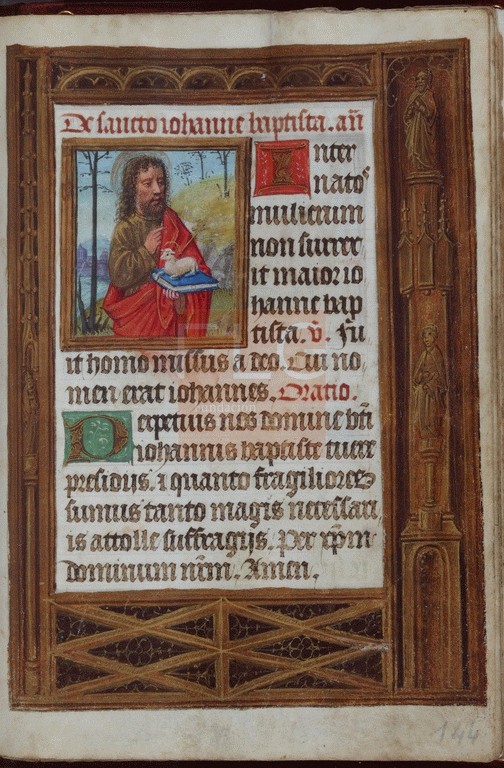 De sancto iohanne baptista. añ
Inter
natos
mulierum
non surrex
it maior io
hanne bap
tista. v̄. Fu
it homo missus a deo. Cui no
men erat iohannes. Oratio.
Perpetuis nos domine bti
iohannis baptiste tuere
presidijs. ⁊ quanto fragiliores
sumus tanto magis necessari
is attolle suffragijs. Per xp̄m
dominum nr̄m. Amen.
144